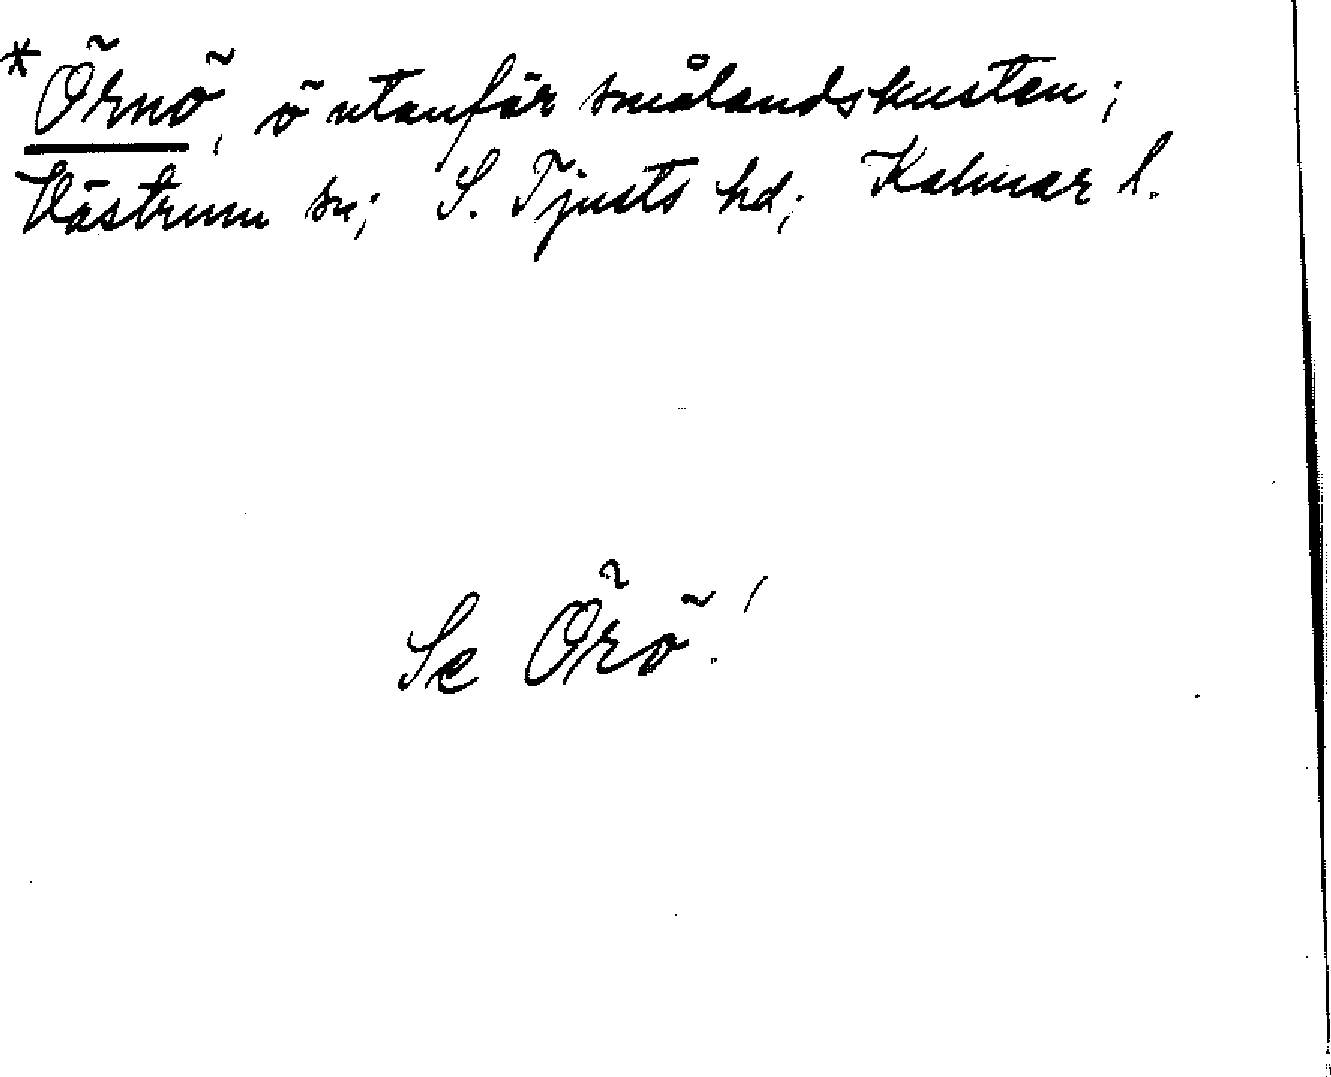 *Örnö, ö utanför smålandskusten;
Västrum sn; S. Tjusts hd; Kalmar l.
Se Örö!